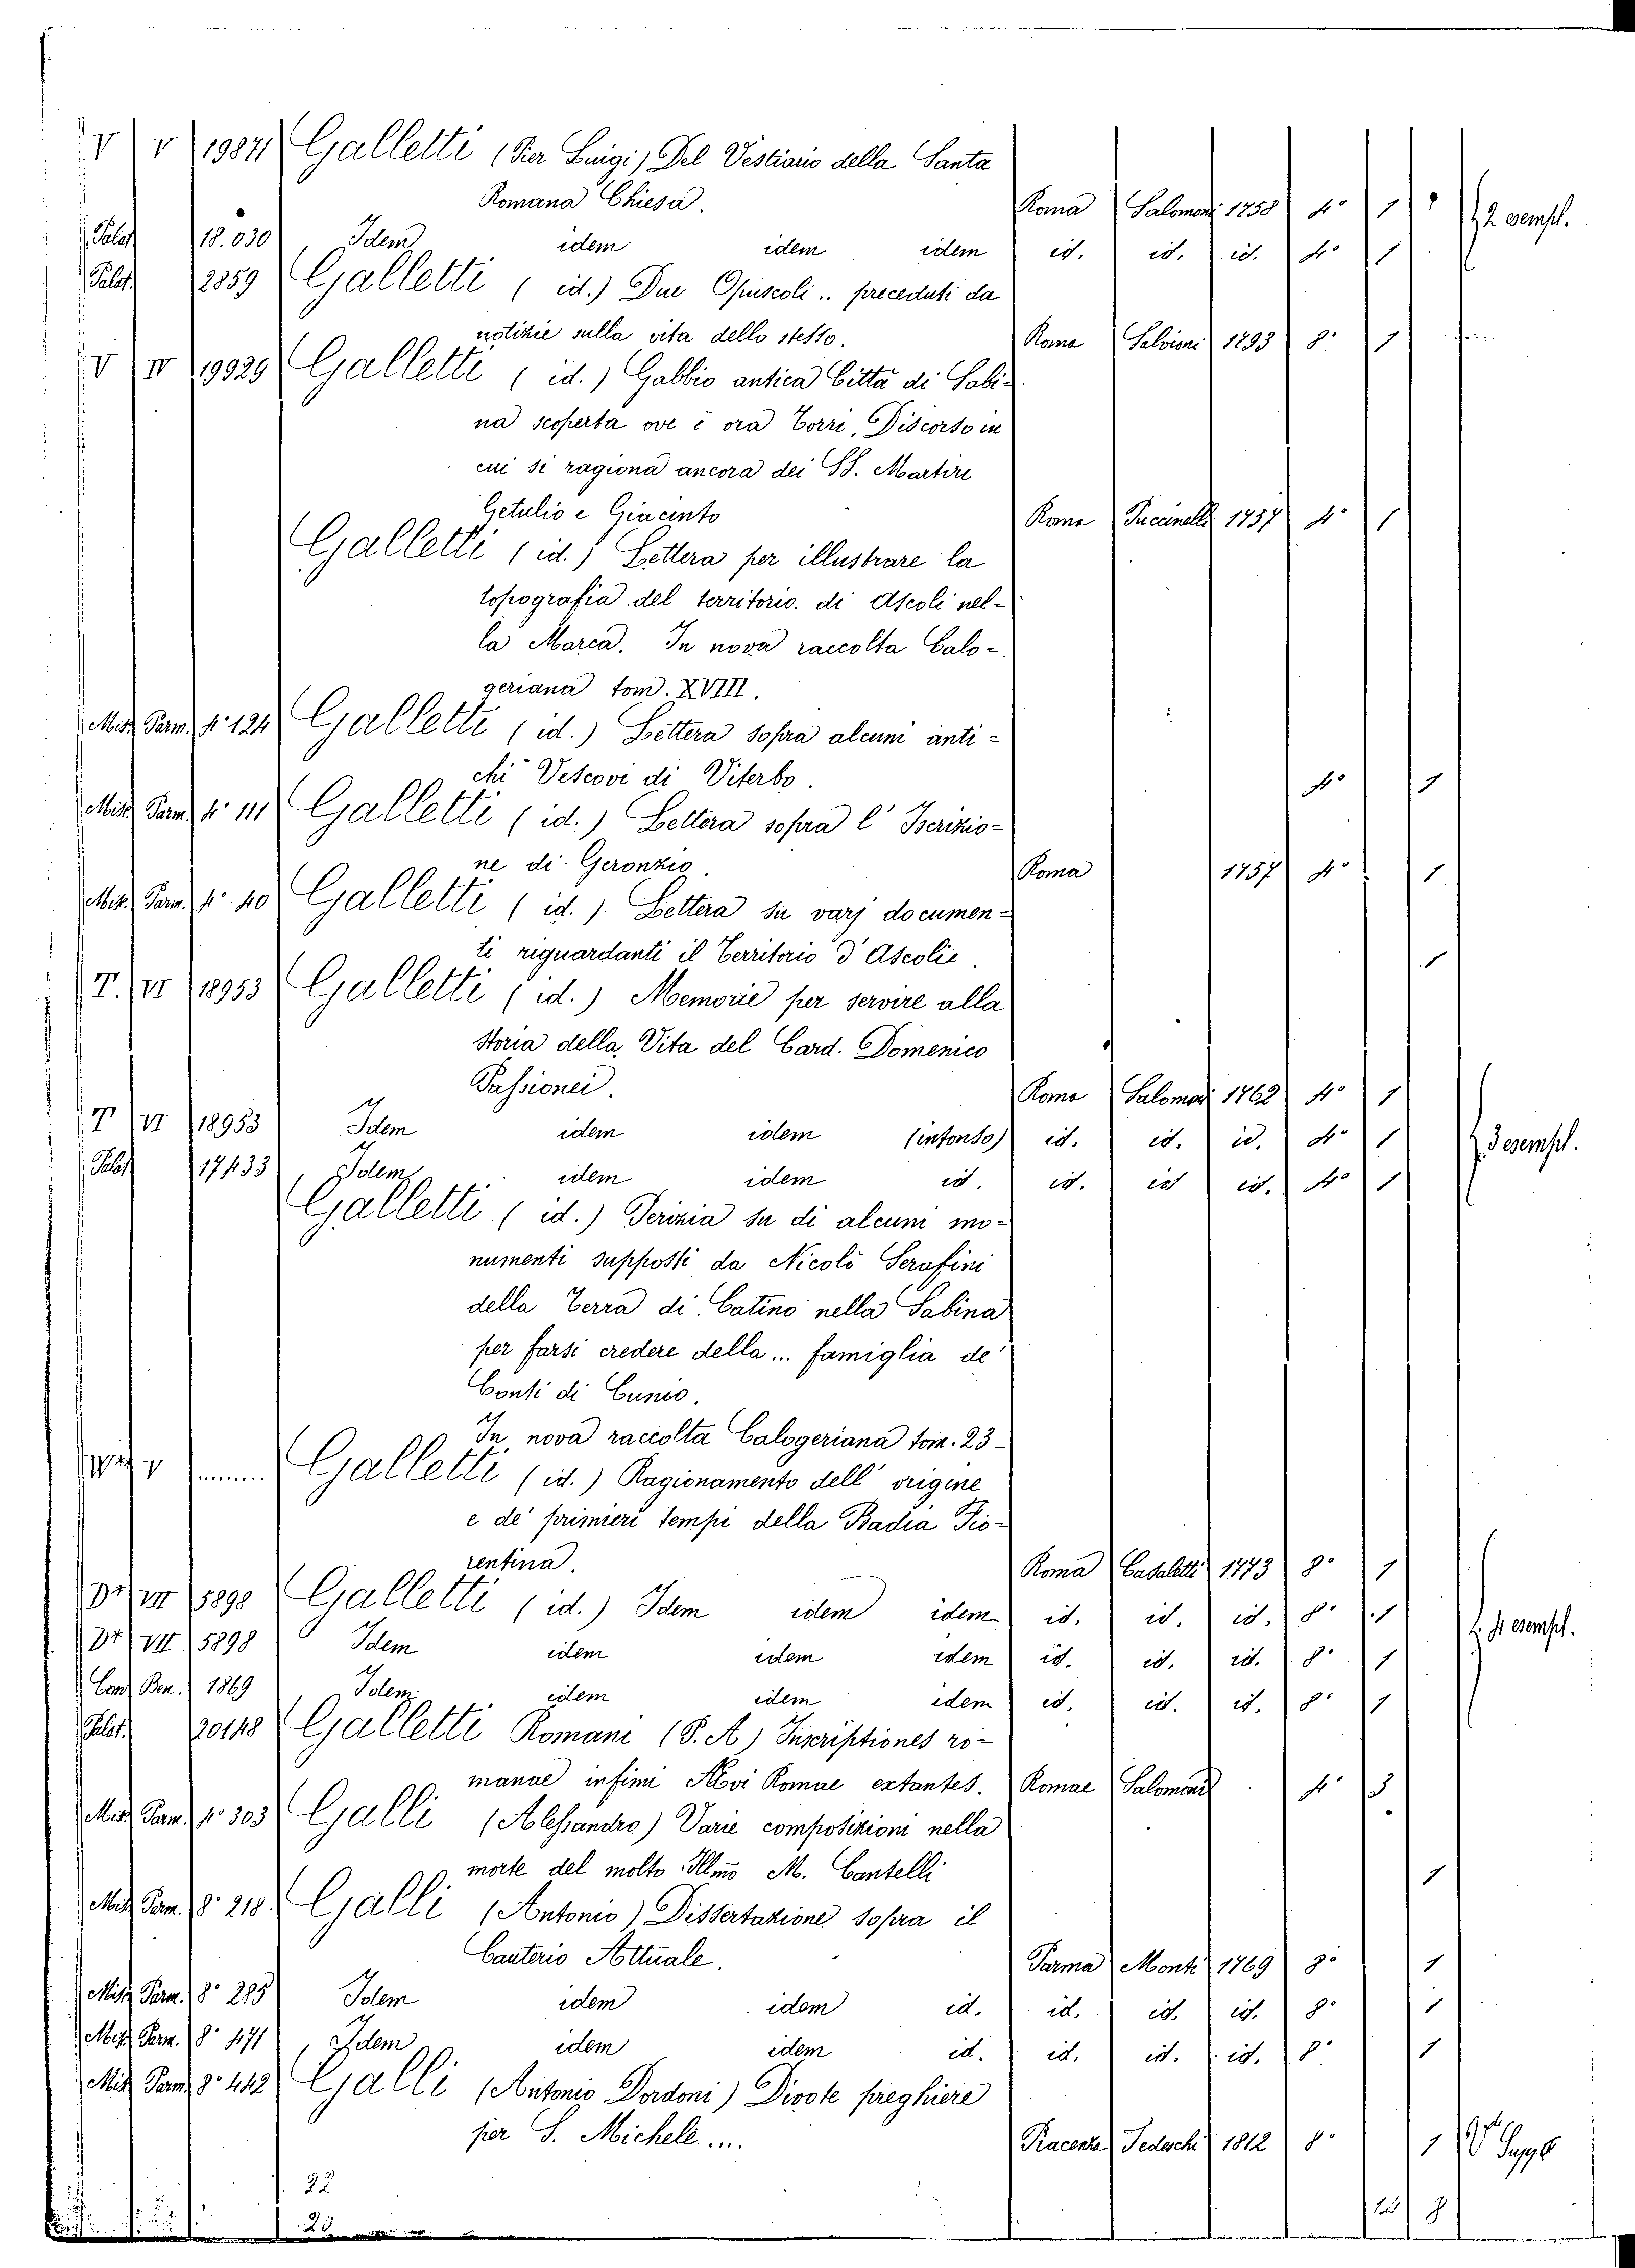 V V 19871 Galletti (Pier Luigi) Del Vestiario della Santa
Romana Chiesa. Roma Salomoni 1758 4° 1 2 esempl.
Palat 18.030 Idem idem idem idem id. id. id. 4° 1
Palat. 2859 Galletti ( id.) Due Opuscoli .. preceduti da
notizie sulla vita dello stesso. Roma Salvioni 1793 8° 1
V IV 19929 Galletti ( id. ) Gabbio antica Città di Sabi-
na scoperta ove è ora Torri, Discorso in
cui si ragiona ancora dei SS. Martiri
Getulio e Giacinto Roma Puccinelli 1757 4° 1
Galletti ( id. ) Lettera per illustrare la
topografia del territorio di Ascoli nel-
la Marca. In nova raccolta Calo-
geriana tom. XVIII.
Misc. Parm. 4° 124 Galletti ( id. ) Lettera sopra alcuni anti-
chi Vescovi di Viterbo. 4° 1
Misc. Parm. 4° 111 Galletti ( id. ) Lettera sopra l' Iscrizio-
ne di Geronzio. Roma 1757 4° 1
Misc. Parm. 4° 40 Galletti ( id. ) Lettera su varj documen-
ti riguardanti il Territorio d' Ascolie. 1
T. VI 18953 Galletti ( id. ) Memorie per servire alla
storia della Vita del Card. Domenico
Passionei. Roma Salomoni 1762 4° 1
T VI 18953 Idem idem idem (intonso) id. id. id. 4° 1 3 esempl.
Palat 17433 Idem idem idem id. id. id id. 4° 1
Galletti ( id. ) Perizia su di alcuni mo-
numenti supposti da Nicolò Serafini
della Terra di Catino nella Sabina
per farsi credere della... famiglia de'
Conti di Cuneo.
In nova raccolta Calogeriana tom. 23-
V ........ Galletti ( id. ) Ragionamento dell' origine
e de' primieri tempi della Badia Fio-
rentina. Roma Casaletti 1773 8° 1
VII 5898 Galletti ( id. ) Idem idem idem id. id. id. 8° 1 4 esempl.
VII 5898 Idem idem idem idem id. id. id. 8° 1
Con. Ben. 1869 Idem idem idem idem id. id. id. 8° 1
Palat. 20148 Galletti Romani (P. A) Inscriptiones ro-
manae infimi Aevi Romae extantes. Romae Salomoni 4° 3
Misc. Parm. 4° 303 Galli (Alessandro) Varie composizioni nella
morte del molto Illmo M. Cantelli 1
Misc. Parm. 8° 218 Galli (Antonio) Dissertazione sopra il
Cauterio Attuale. Parma Monti 1769 8° 1
Misc. Parm. 8° 285 Idem idem idem id. id. id. id. 8° 1
Misc. Parm. 8° 471 Idem idem idem id. id. id. id. 8° 1
Misc. Parm. 8° 442 Galli (Antonio Dordoni) Divote preghiere
per S. Michele .... Piacenza Tedeschi 1812 8° 1 V Suppl
22